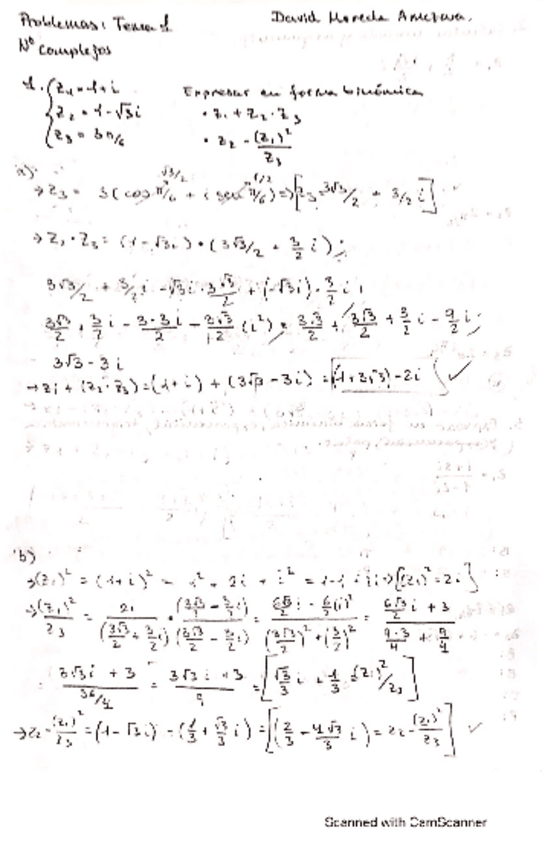 Problemas: Tema 1 David
Nº Complejos
1. { z₁ = 1+i Expresar en forma binómica
z₂ = 1-√3i • z₁ + z₂ · z₃
z₃ = 3π/6 • z₂ - (z₁)²/z₃
a)
→ z₃ = 3(cos π/6 + i sen π/6) ⇒ [z₃ = 3√3/2 + 3/2 i]
→ z₂ · z₃ = (1-√3i) · (3√3/2 + 3/2 i);
3√3/2 + 3/2 i - √3i · 3√3/2 + (-√3i) · 3/2 i;
3√3/2 + 3/2 i - 3·3i/2 - 3√3/2 (i²) = 3√3/2 + 3√3/2 + 3/2 i - 9/2 i;
3√3 - 3i
→ z₁ + (z₂·z₃) = (1+i) + (3√3 - 3i) = [(1+3√3) - 2i] ✓
b)
→ (z₁)² = (1+i)² = 1² + 2i + i² = 1-1+2i ⇒ [(z₁)² = 2i]
→ (z₁)²/z₃ = 2i/(3√3/2 + 3/2 i) · (3√3/2 - 3/2 i)/(3√3/2 - 3/2 i) = (6√3/2 i - 6/2 (i)²)/((3√3/2)² + (3/2)²) = (6√3/2 i + 3)/(9·3/4 + 9/4)
= (3√3i + 3)/(36/4) = (3√3i + 3)/9 = [√3/3 i + 1/3 = (z₁)²/z₃]
→ z₂ - (z₁)²/z₃ = (1-√3i) - (1/3 + √3/3 i) = [(2/3 - 4√3/3 i) = z₂ - (z₁)²/z₃] ✓
Scanned with CamScanner